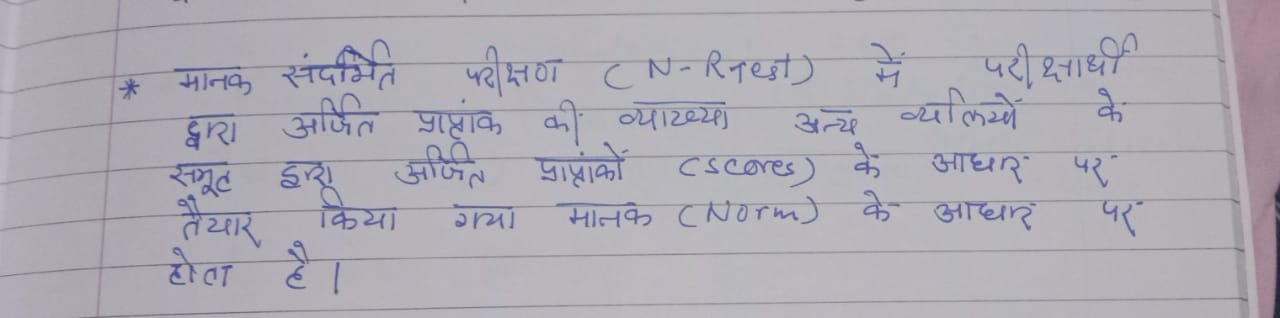 * मानक संदर्भित परीक्षण (N-RTest) में परीक्षार्थी
द्वारा अर्जित प्राप्तांक की व्याख्या अन्य व्यक्तियों के
समूह द्वारा अर्जित प्राप्तांकों (scores) के आधार पर
तैयार किया गया मानक (Norm) के आधार पर
होता है।